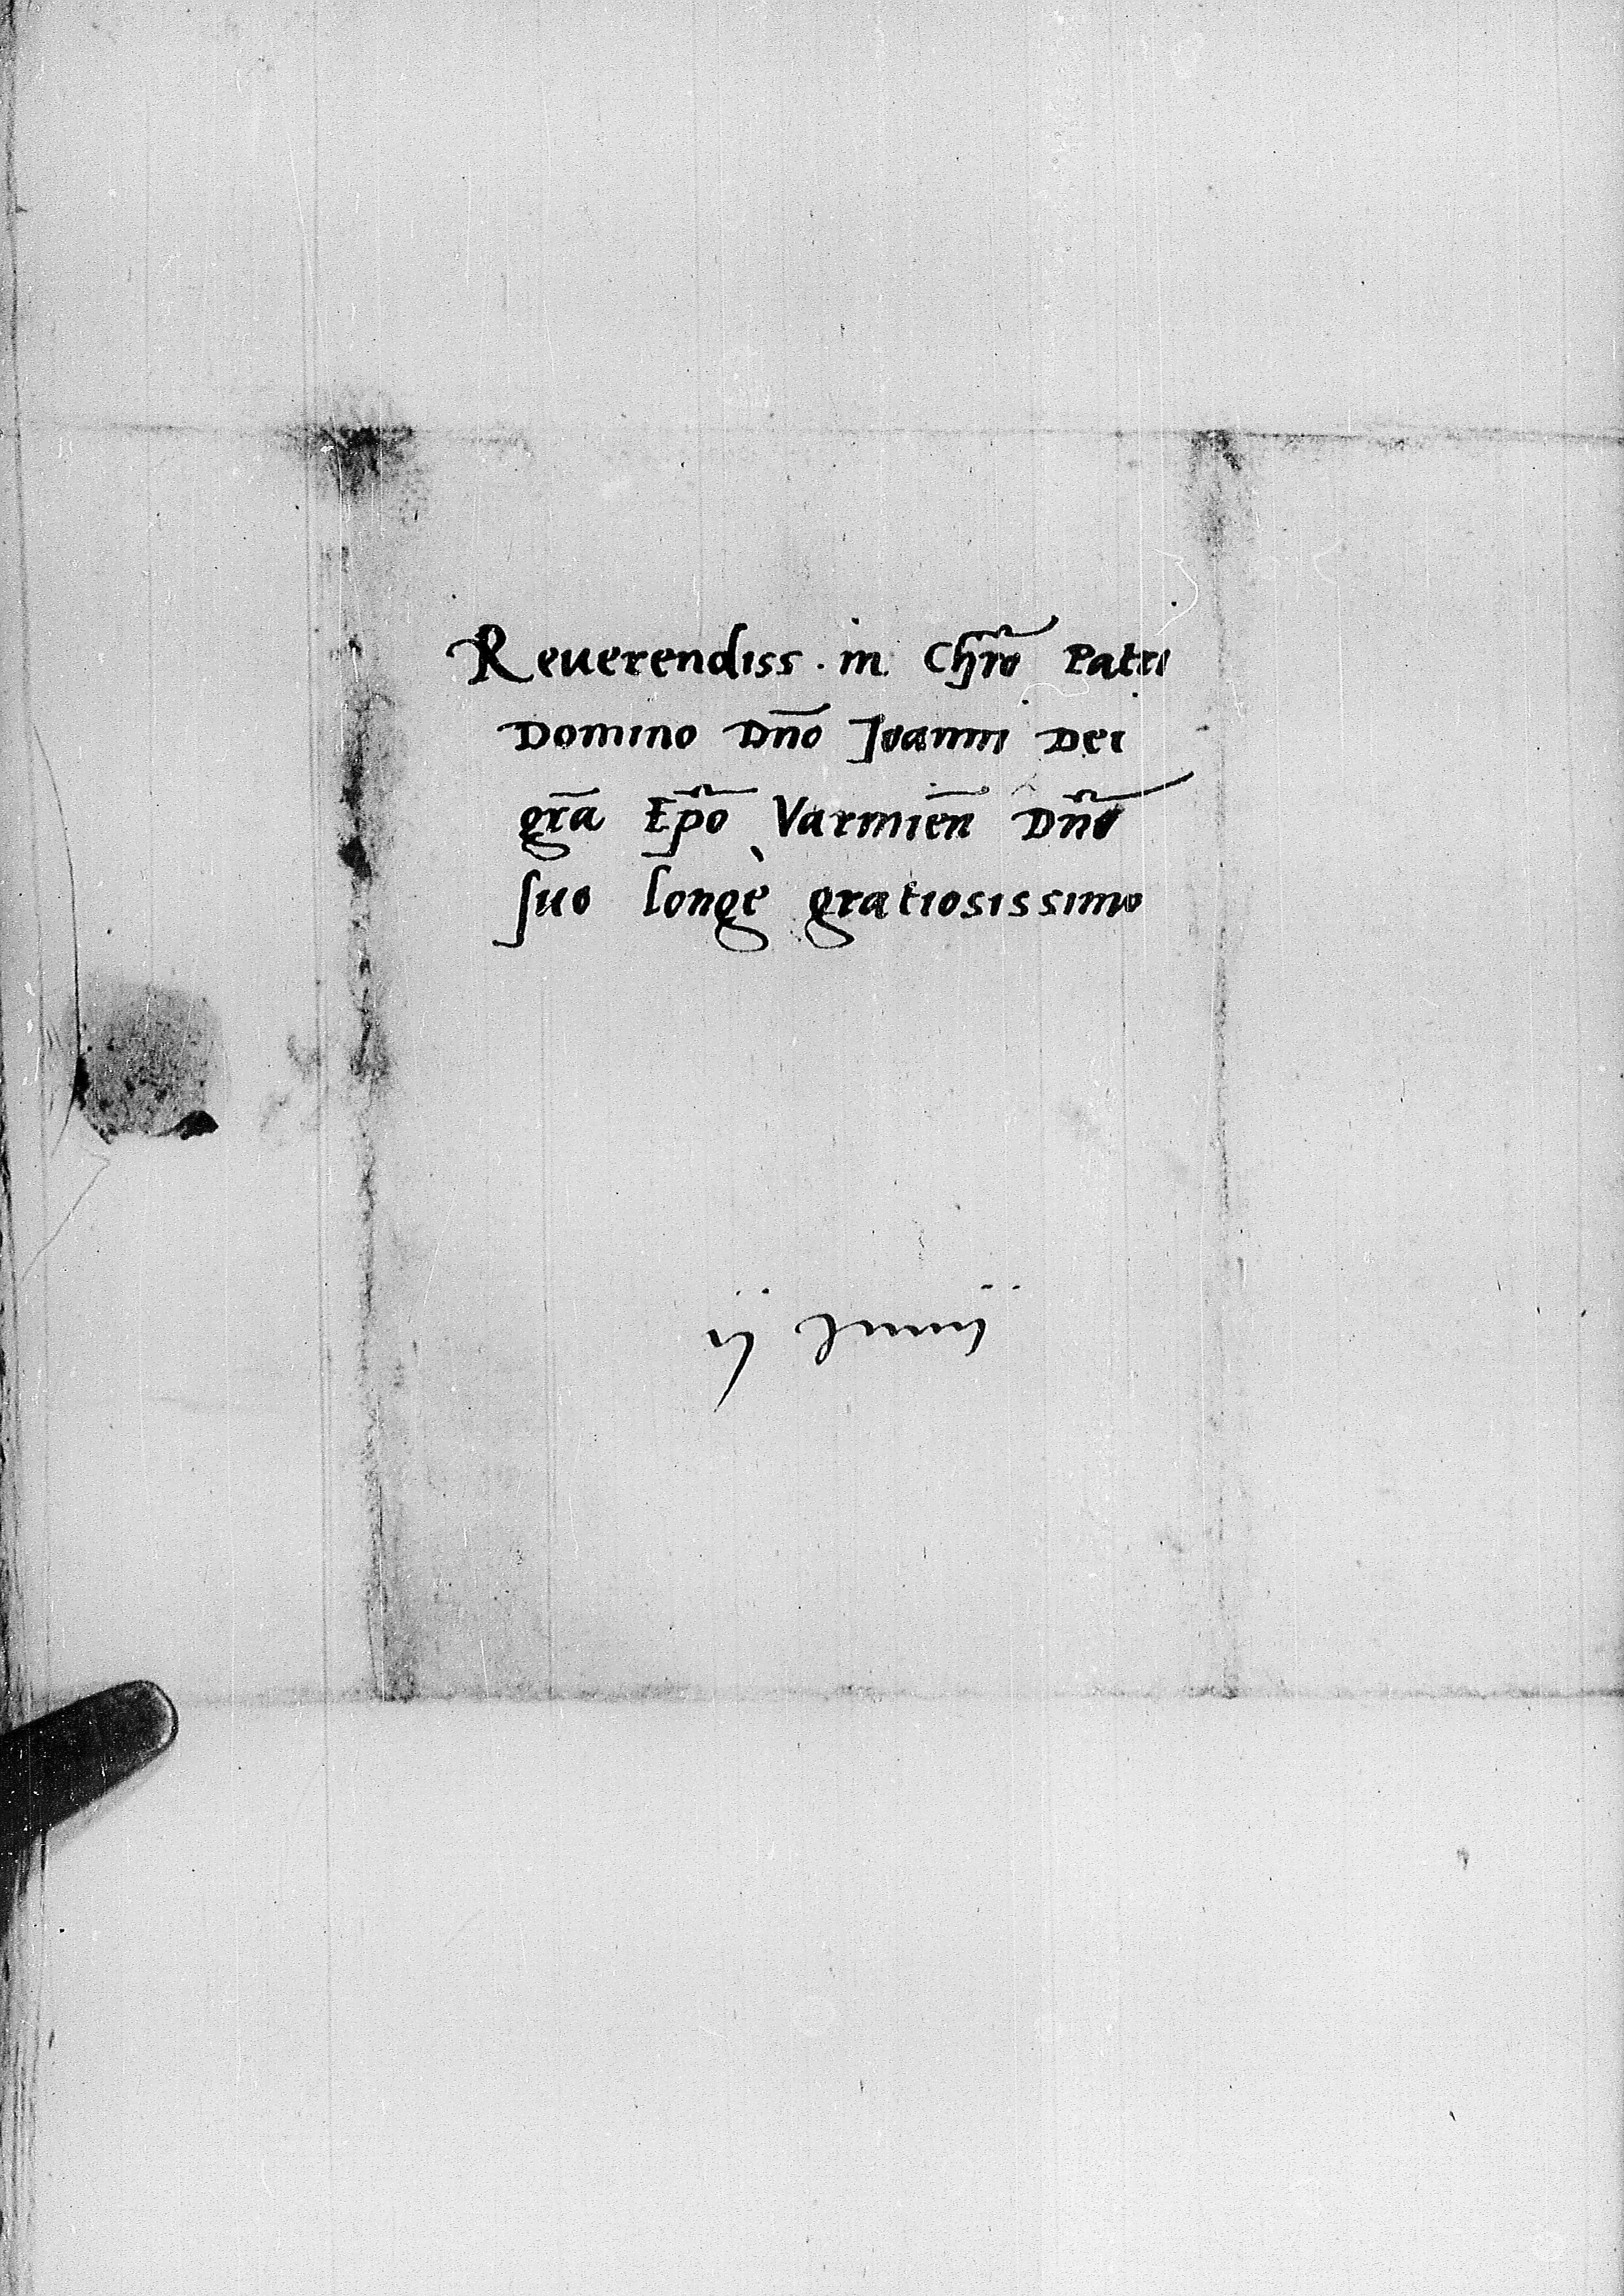 Reuerendiss. in Chr̃o Patri
Domino Dn̄o Ioanni Dei
gr̄a Ep̃o Varmien̄ Dn̄o
suo longè gratiosissimo
ij Junij